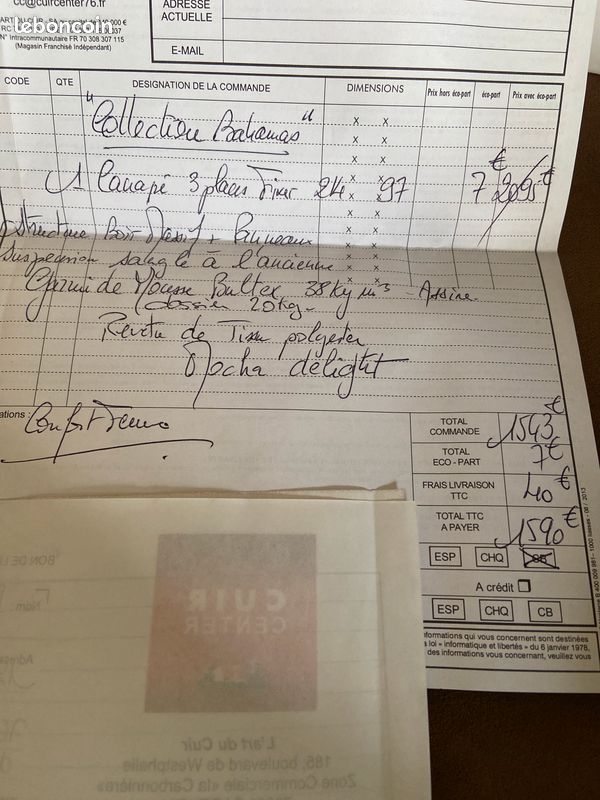 cc@cuircenter76.fr
leboncoin
N° Intracommunautaire FR 70 308 307 115
(Magasin Franchisé Indépendant)
ADRESSE
ACTUELLE
E-MAIL
CODE QTE DESIGNATION DE LA COMMANDE DIMENSIONS Prix hors éco-part éco-part Prix avec éco-part
"Collection Bahamas"
1 Canapé 3 places Tissu 214 97 7 € 2095 €
Structure Bois Massif + Panneaux
Suspension sangle à l'ancienne
Garni de Mousse Bultex 38kg m3 Assise
(dossier 20kg
Revetu de Tissu polyester
Mocha delight
ations : Confort Ferme
TOTAL
COMMANDE 1543 €
TOTAL
ECO - PART 7 €
FRAIS LIVRAISON
TTC 40 €
TOTAL TTC
A PAYER 1590 €
ESP CHQ CB
A crédit
ESP CHQ CB
nformations qui vous concernent sont destinées
a loi « informatique et libertés » du 6 janvier 1978,
des informations vous concernant, veuillez vous
CUIR
CENTER
L'art du Cuir
185, boulevard de Westphalie
Zone Commerciale «la Carbonnière»